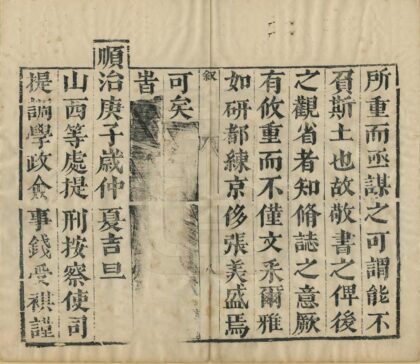 所重而亟謀之可謂能不
負斯土也故敬書之俾後
之觀省者知脩誌之意厥
有攸重而不僅文采爾雅
如研都練京侈張美盛焉
可矣
旹
叙
八
順治庚子歳仲夏吉旦
山西等處提刑按察使司
提調學政僉事錢受祺謹